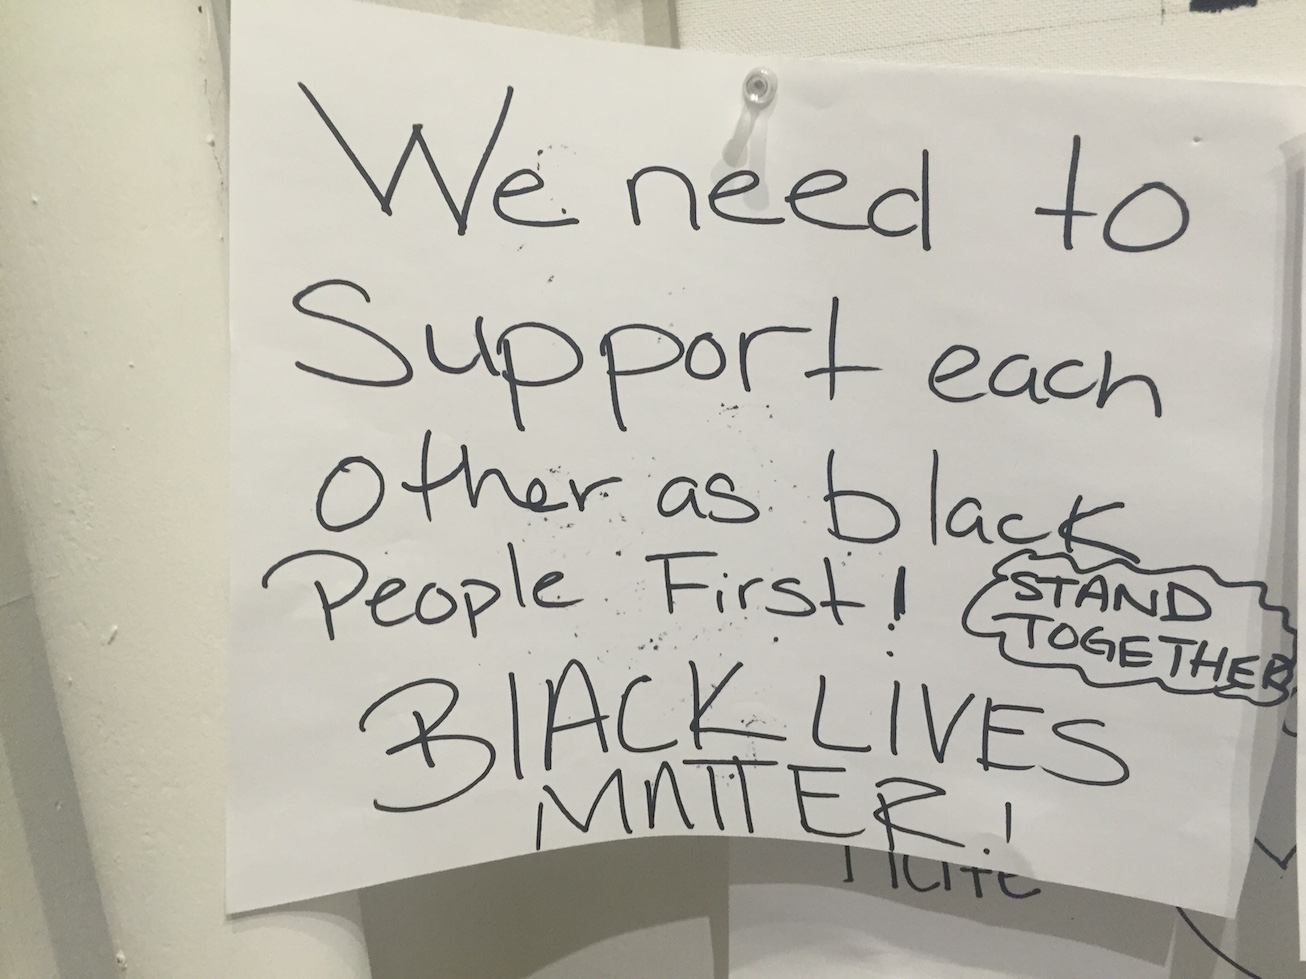 We need to
Support each
other as black
People First!
STAND
TOGETHER
BlACK LIVES
MATTER!